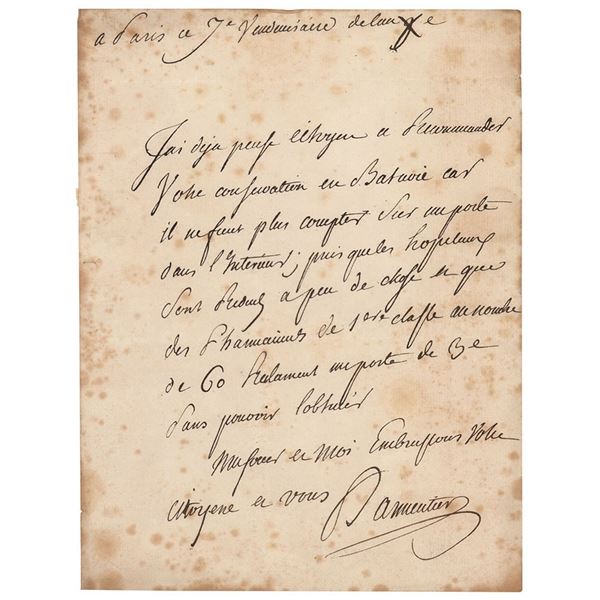 a Paris ce 7e Vendemiaire de lan Xe
J'ai deja pensé citoyen a Recommander
Votre conservation en Batavie car
il ne faut plus compter sur un poste
dans l'Interieur; puisque les hopitaux
sont Reduits a peu de chose et que
des Pharmaciens de 1ere classe au nombre
de 60 Reclament un poste de 3e
sans pouvoir l'obtenir
Ma soeur et Moi Embrassons Votre
citoyene et vous Parmentier